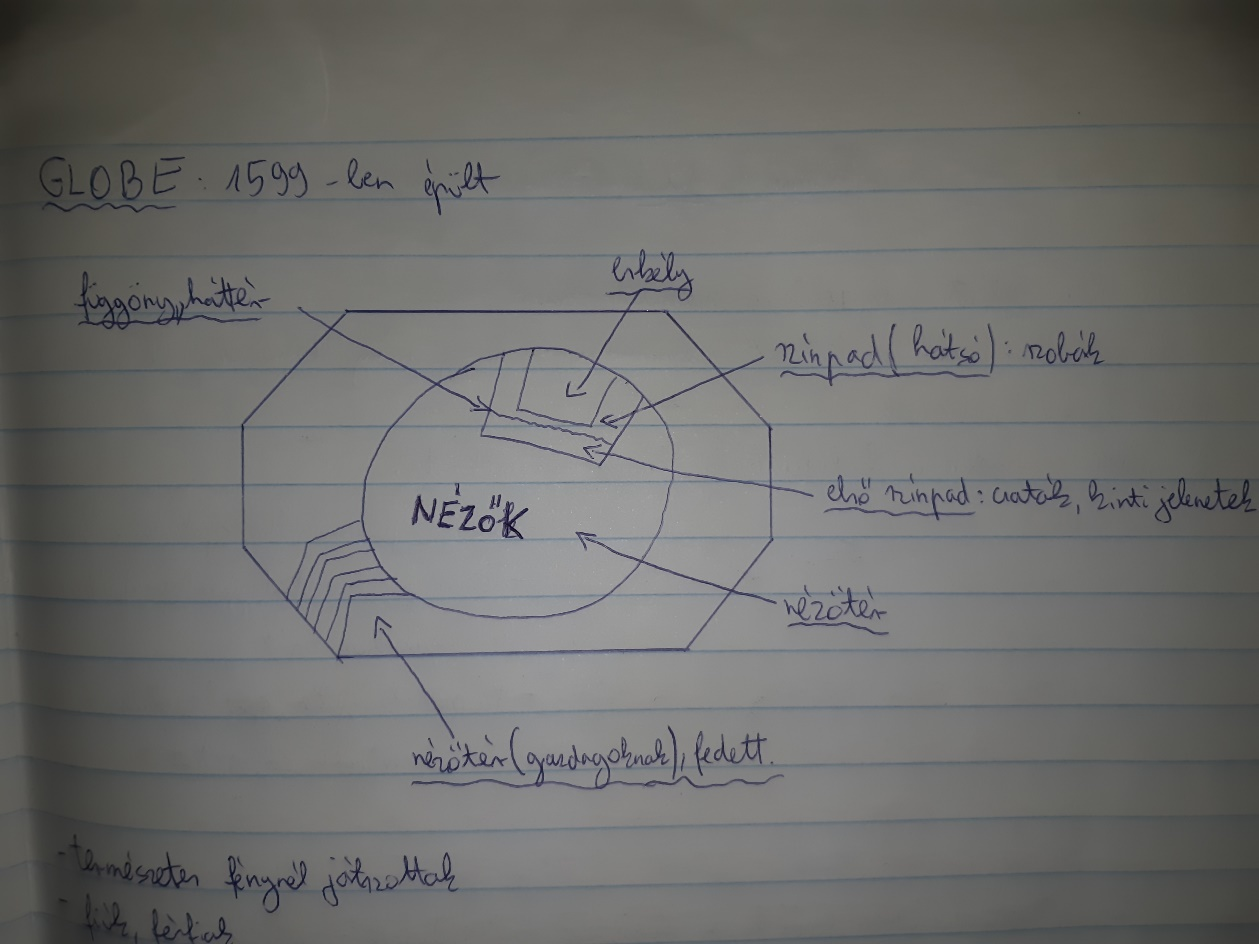 GLOBE: 1599-ben épült
erkély
függöny, háttér
színpad (hátsó): szobák
első színpad: csaták, kinti jelenetek
NÉZŐK
nézőtér
nézőtér (gazdagoknak), fedett.
- természetes fénynél játszottak
- fiúk, férfiak